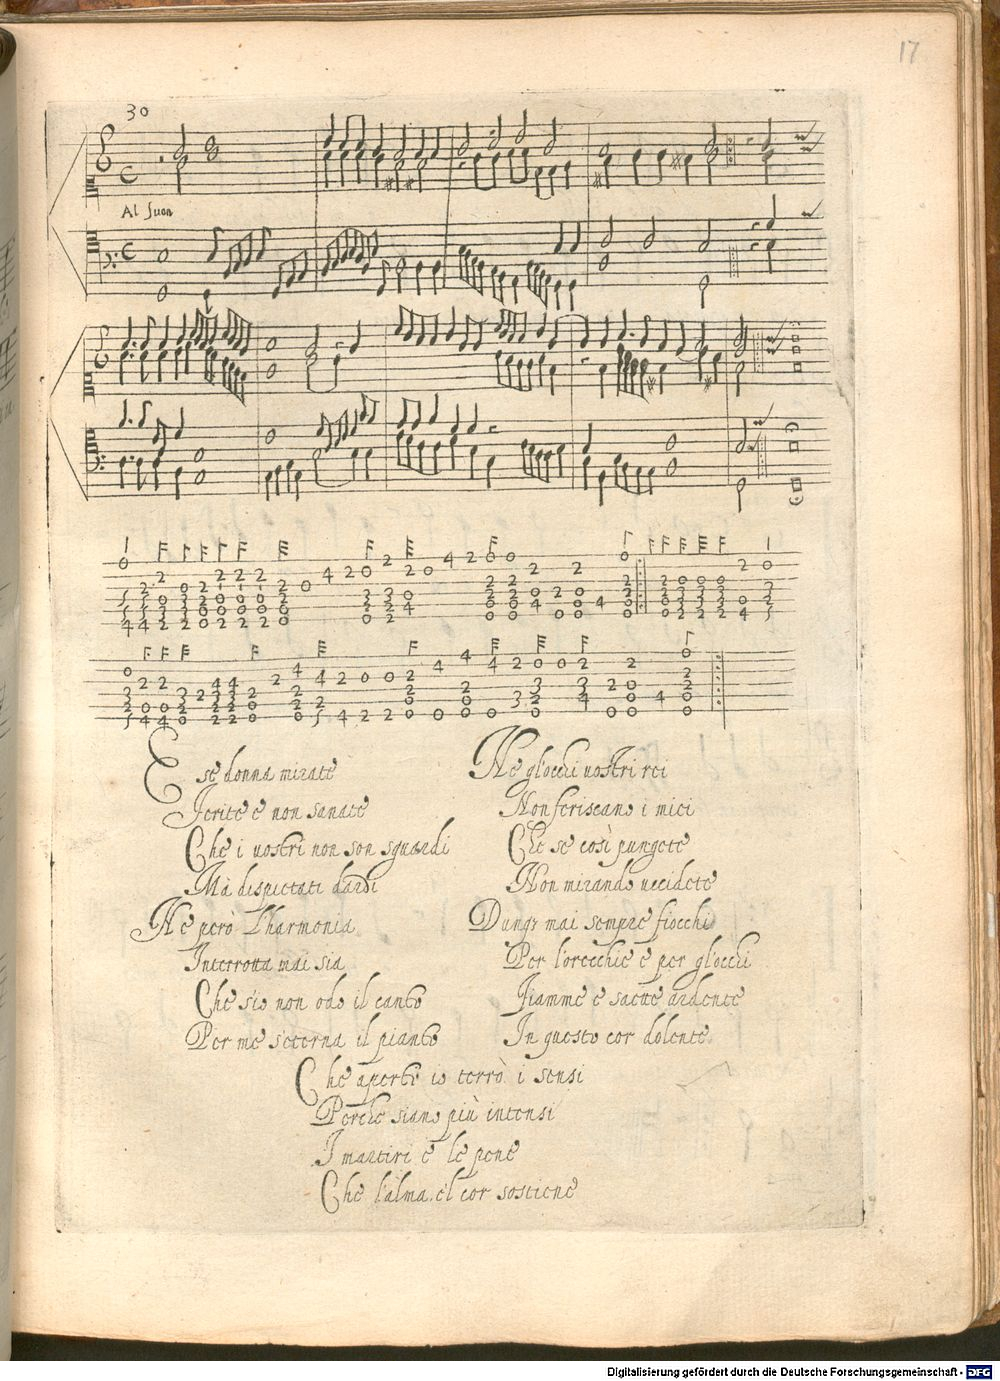 17
30
Al suon
E se donna mirate
Ferite e non sanate
Che i vostri non son sguardi
Mà dispietati dardi
Ne però l'harmonia
Interrotta mai sia
Che s'io non odo il canto
Per me s'eterna il pianto
Ne gl'occhi vostri rei
Non feriscano i miei
Che se così pungete
Non mirando uccidete
Dunq; mai sempre fiocchi
Per l'orecchie e per gl'occhi
Fiamme e saette ardente
In questo cor dolente
Che aperti io terrò i sensi
Perche siano più intensi
I martiri e le pene
Che l'alma, e'l cor sostiene
Digitalisierung gefördert durch die Deutsche Forschungsgemeinschaft - DFG